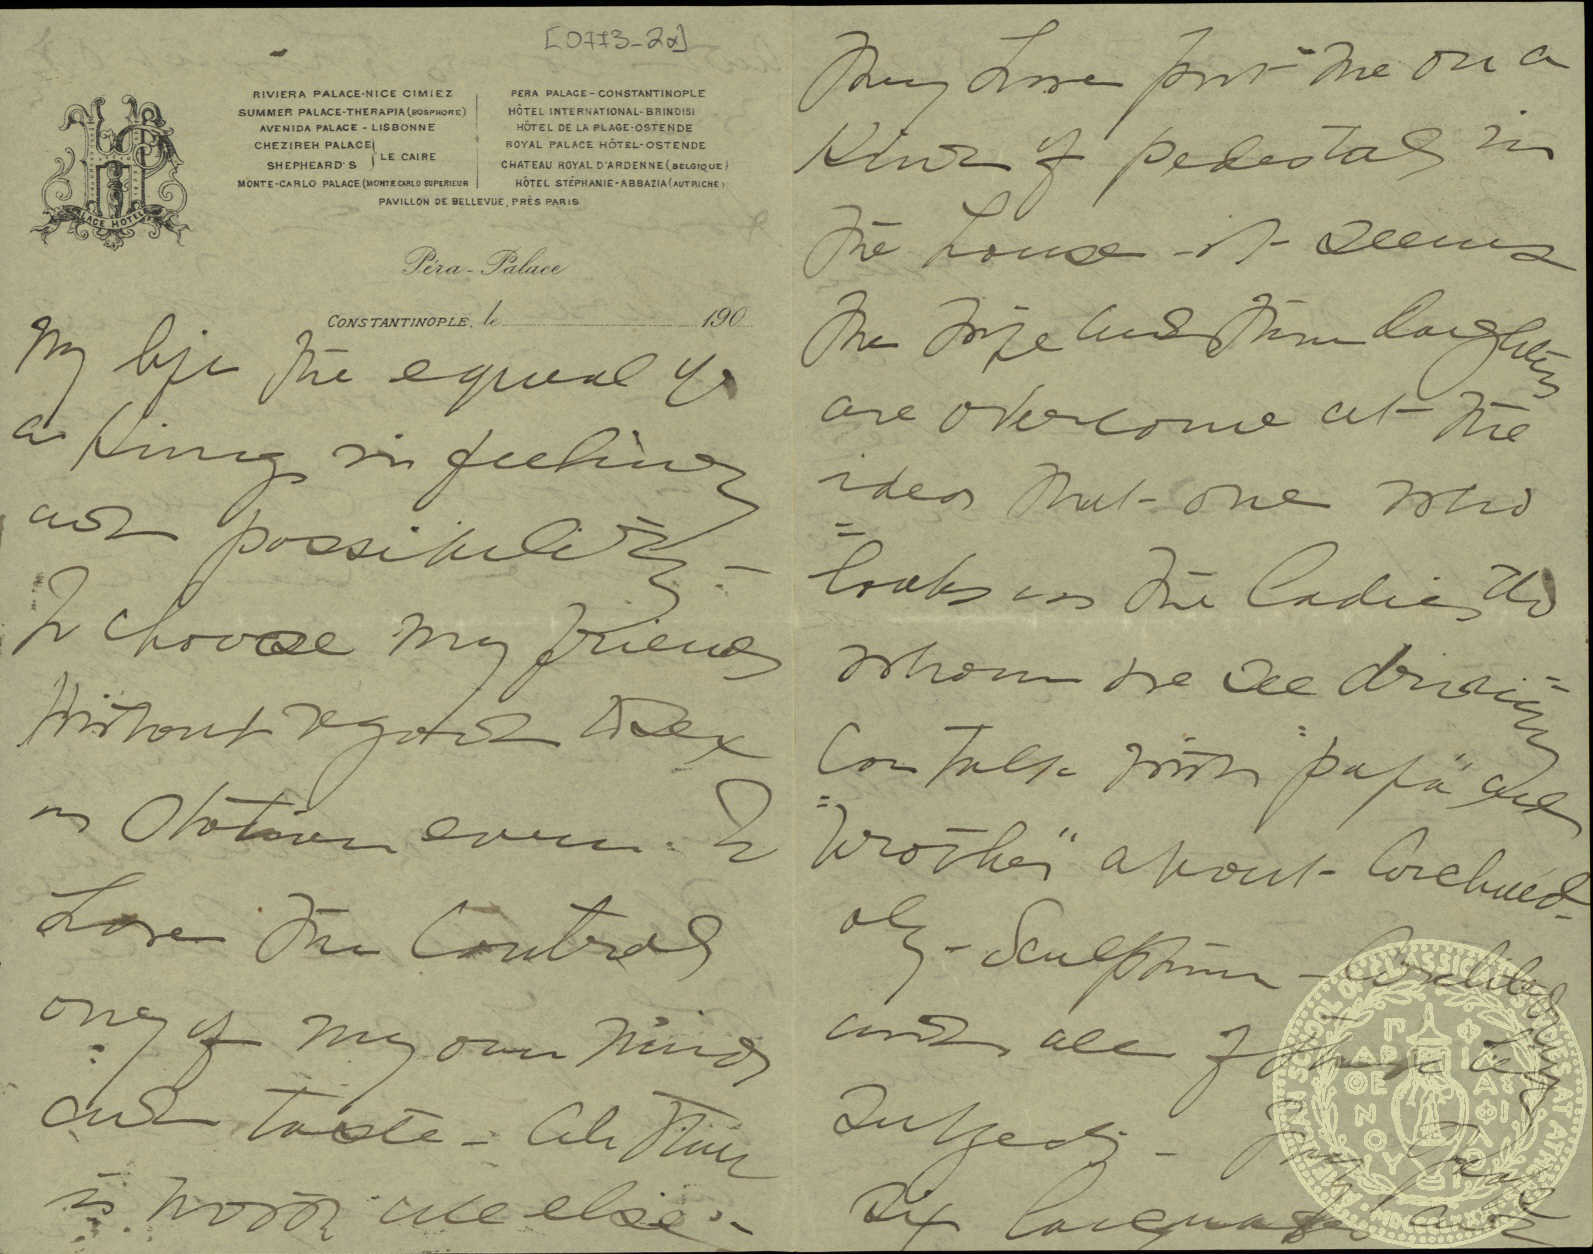 [0773-2α]
PALACE HOTELS
RIVIERA PALACE-NICE CIMIEZ
SUMMER PALACE-THERAPIA (BOSPHORE)
AVENIDA PALACE - LISBONNE
CHEZIREH PALACE
SHEPHEARD'S
LE CAIRE
MONTE-CARLO PALACE (MONTE CARLO SUPERIEUR
PERA PALACE - CONSTANTINOPLE
HÔTEL INTERNATIONAL-BRINDISI
HÔTEL DE LA PLAGE-OSTENDE
ROYAL PALACE HÔTEL-OSTENDE
CHATEAU ROYAL D'ARDENNE (BELGIQUE)
HÔTEL STÉPHANIE-ABBAZIA (AUTRICHE)
PAVILLON DE BELLEVUE, PRÈS PARIS
Péra-Palace
CONSTANTINOPLE, le 190
My life the equal of
a King in feeling
and possibility -
To choose my friends
without regard to sex
or station even. To
Love the Control
only of my own mind
and taste - Ah this
is worth all else -
They have put me on a
kind of pedestal in
the house - it seems
the wife and three daughters
are overcome at the
idea that one who
"looks as the ladies do
whom we see driving"
can talk with "papa" and
"brother" about Archaeol-
ogy - Sculpture - Architecture
and all of their
subjects - They speak
six languages and